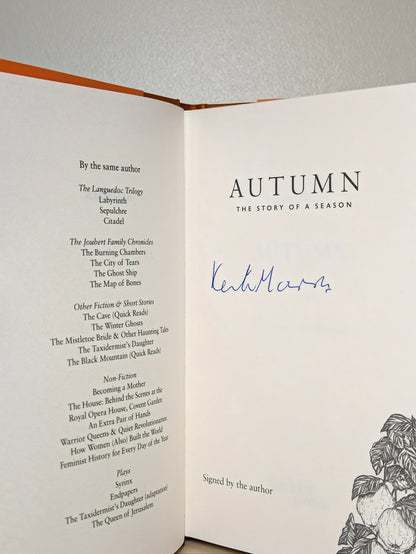 By the same author
The Languedoc Trilogy
Labyrinth
Sepulchre
Citadel
The Joubert Family Chronicles
The Burning Chambers
The City of Tears
The Ghost Ship
The Map of Bones
Other Fiction & Short Stories
The Cave (Quick Reads)
The Winter Ghosts
The Mistletoe Bride & Other Haunting Tales
The Taxidermist's Daughter
The Black Mountain (Quick Read)
Non-Fiction
Becoming a Mother
The House: Behind the Scenes at the
Royal Opera House, Covent Garden
An Extra Pair of Hands
Warrior Queens & Quiet Revolutionaries:
How Women (Also) Built the World
Feminist History for Every Day of the Year
Plays
Syrinx
Endpapers
The Taxidermist's Daughter (adaptation)
The Queen of Jerusalem
AUTUMN
THE STORY OF A SEASON
Signed by the author